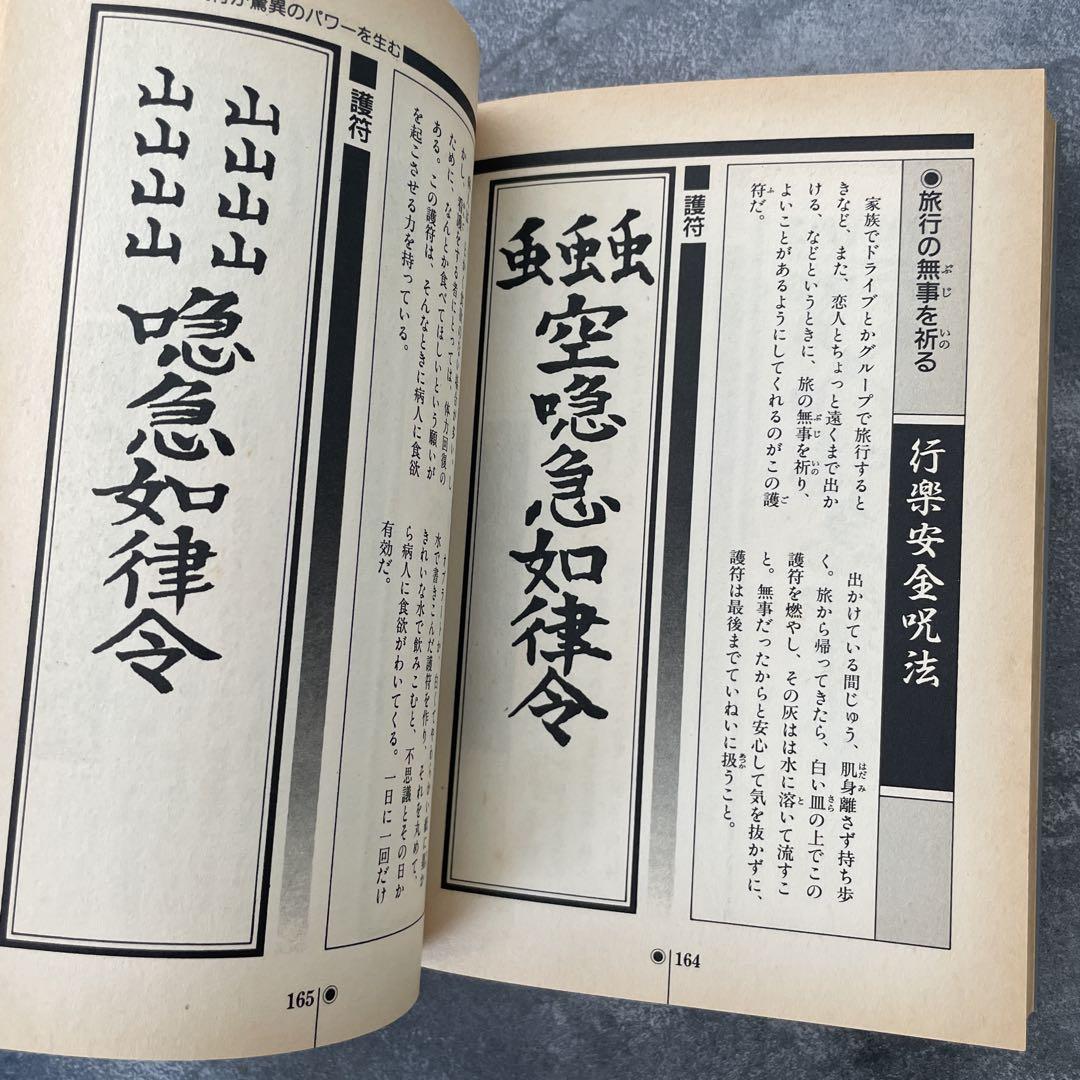 ◉旅行の無事を祈る
ぶじ
いの
行楽安全呪法
家族でドライブとかグループで旅行すると
きなど、また、恋人とちょっと遠くまで出か
ける、などというときに、旅の無事を祈り、
ぶじ
いの
よいことがあるようにしてくれるのがこの護
ご
符だ。
ふ
出かけている間じゅう、肌身離さず持ち歩
はだみ
く。旅から帰ってきたら、白い皿の上でこの
さら
護符を燃やし、その灰はは水に溶いて流すこ
と
と。無事だったからと安心して気を抜かずに、
護符は最後までていねいに扱うこと。
あつか
■護符
空
急如律令
◉164
驚異のパワーを生む
かし、看護をする者にとっては、体力回復の
ために、なんとか食べてほしいという願いが
ある。この護符は、そんなときに病人に食欲
を起こさせる力を持っている。
水で書きこんだ護符を作り、それを丸めて、
きれいな水で飲みこむと、不思議とその日か
ら病人に食欲がわいてくる。一日に一回だけ
有効だ。
■護符
山山山山
山山山山
急如律令
165◉